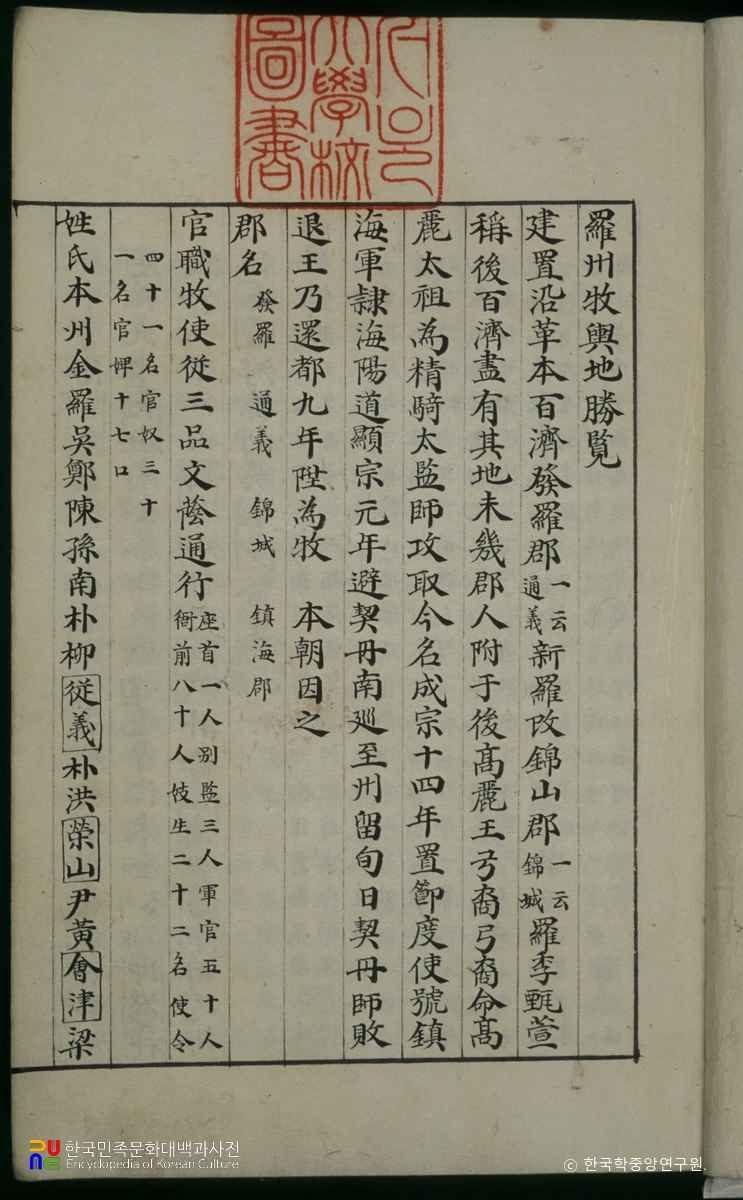 羅州牧輿地勝覧
建置沿革本百濟發羅郡一云通義新羅改錦山郡一云錦城羅季甄萱
稱後百濟盡有其地未幾郡人附于後髙麗王弓裔弓裔命髙
麗太祖為精騎太監師攻取今名成宗十四年置節度使號鎮
海軍隷海陽道顯宗元年避契丹南廵至州留旬日契丹師敗
退王乃還都九年陞為牧 本朝因之
郡名 發羅 通義 錦城 鎮海郡
官職牧使從三品文蔭通行座首一人別監三人軍官五十人
衙前八十人妓生二十二名使令
四十一名官奴三十
一名官婢十七口
姓氏本州金羅吳鄭陳孫南朴柳從義朴洪榮山尹黃會津梁
大學校
圖書
한국민족문화대백과사전
Encyclopedia of Korean Culture
© 한국학중앙연구원